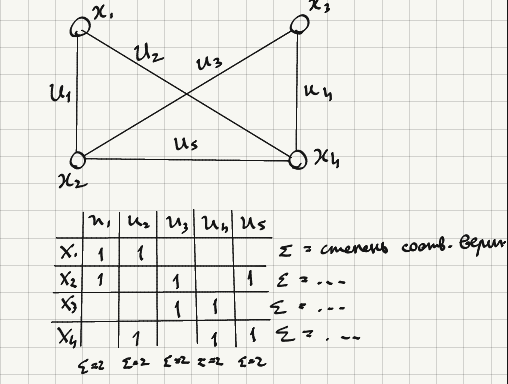 x₁ x₃
u₂ u₃
u₁ u₄
u₅
x₂ x₄
u₁ u₂ u₃ u₄ u₅
x₁ 1 1 Σ = степень соотв. верши
x₂ 1 1 1 Σ = ...
x₃ 1 1 Σ = ...
x₄ 1 1 1 Σ = ...
Σ=2 Σ=2 Σ=2 Σ=2 Σ=2